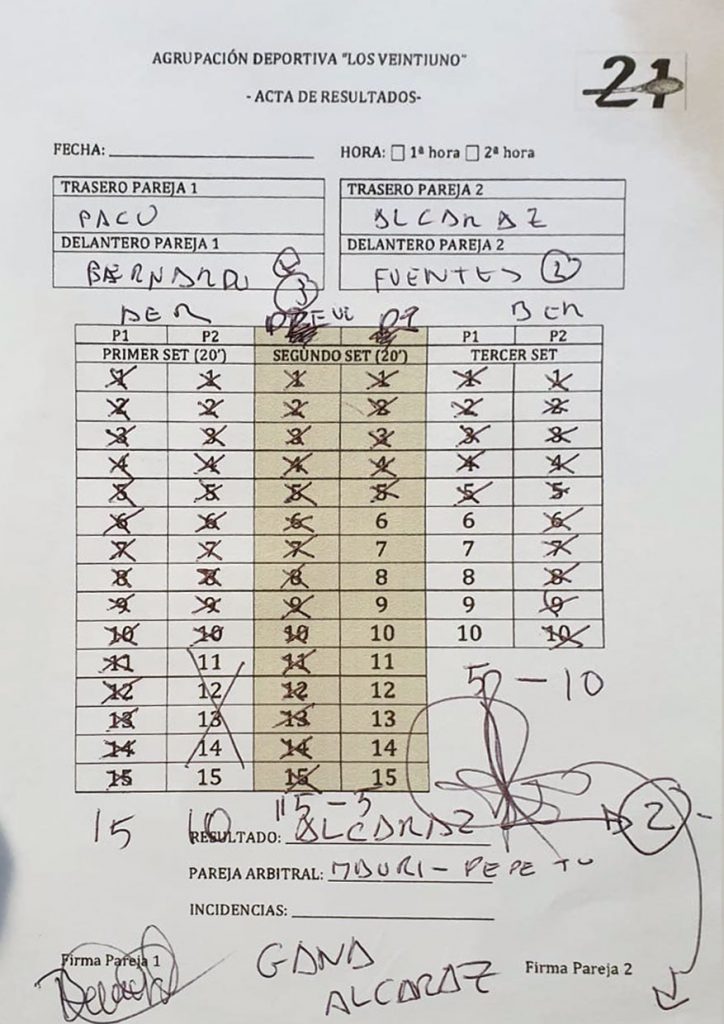 AGRUPACIÓN DEPORTIVA "LOS VEINTIUNO"
21
- ACTA DE RESULTADOS-
FECHA: HORA: 1ª hora 2ª hora
TRASERO PAREJA 1 TRASERO PAREJA 2
PACO ALCARAZ
DELANTERO PAREJA 1 DELANTERO PAREJA 2
BERNARDO 2 FUENTES 2
3
BER
P1 P2 P1 P2
PRIMER SET (20') SEGUNDO SET (20') TERCER SET
1 1 1 1 1 1
2 2 2 2 2 2
3 3 3 3 3 3
4 4 4 4 4 4
5 5 5 5 5 5
6 6 6 6 6 6
7 7 7 7 7 7
8 8 8 8 8 8
9 9 9 9 9 9
10 10 10 10 10 10
11 11 11 11
12 12 12 12
13 13 13 13
14 14 14 14
15 15 15 15
5 - 10
15 10 15 - 5
RESULTADO: ALCARAZ 2
PAREJA ARBITRAL: MAURI - PEPE TO
INCIDENCIAS:
Firma Pareja 1 GANA Firma Pareja 2
ALCARAZ